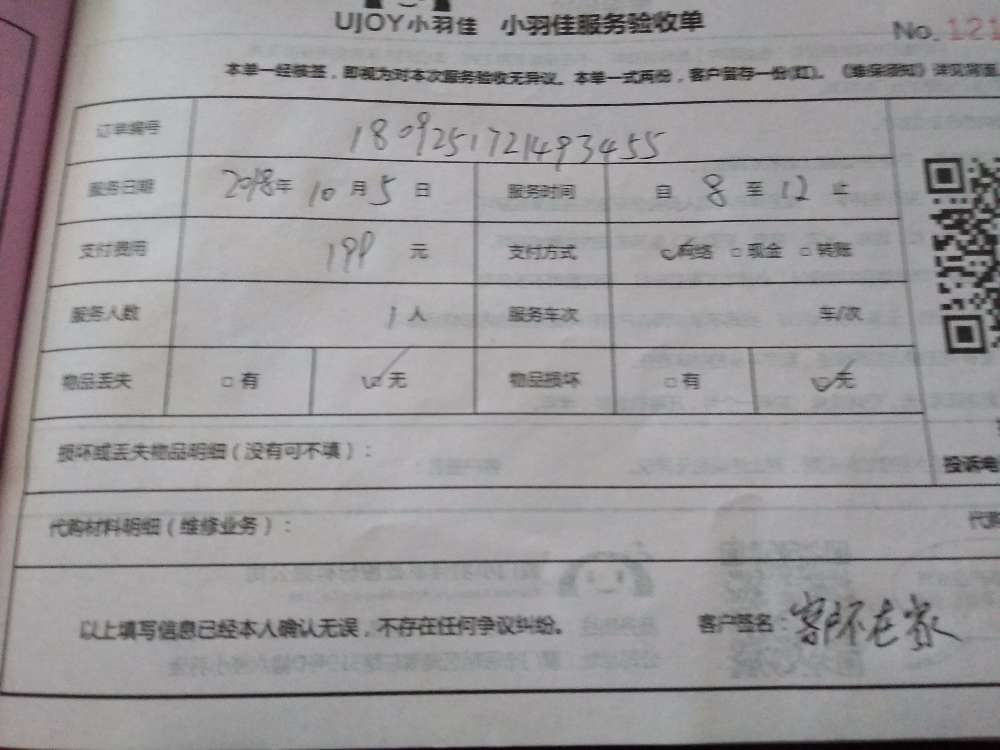 UJOY小羽佳 小羽佳服务验收单
No. 121
本单一经核签，即视为对本次服务验收无异议。本单一式两份，客户留存一份(红)。《维保须知》详见背面
订单编号 1809251721493455
服务日期 2018年 10月5日 服务时间 自 8 至 12 止
支付费用 199 元 支付方式 网络 □现金 □转账
服务人数 1人 服务车次 车/次
物品丢失 □有 ☑无 物品损坏 □有 ☑无
损坏或丢失物品明细（没有可不填）：
投诉电
代购材料明细（维修业务）： 代购
以上填写信息已经本人确认无误，不存在任何争议纠纷。 客户签名：客户不在家